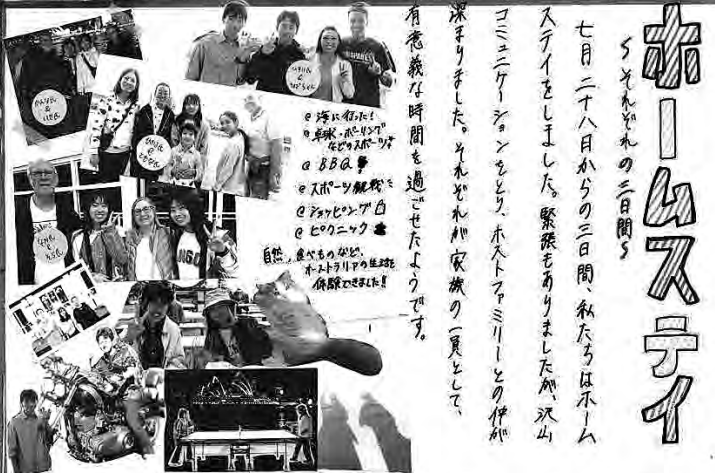 ホームステイ
〜それぞれの三日間〜
七月二十八日からの三日間、私たちはホーム
ステイをしました。緊張もありましたが、沢山
コミュニケーションをとり、ホストファミリーとの仲が
深まりました。それぞれが家族の一員として、
有意義な時間を過ごせたようです。
@ 海に行った!
@ 卓球・ボーリング
などのスポーツ
@ BBQ
@ スポーツ観戦
@ ショッピング
@ ピクニック
自然、食べものなど、
オーストラリアの生活を
体験できました!!